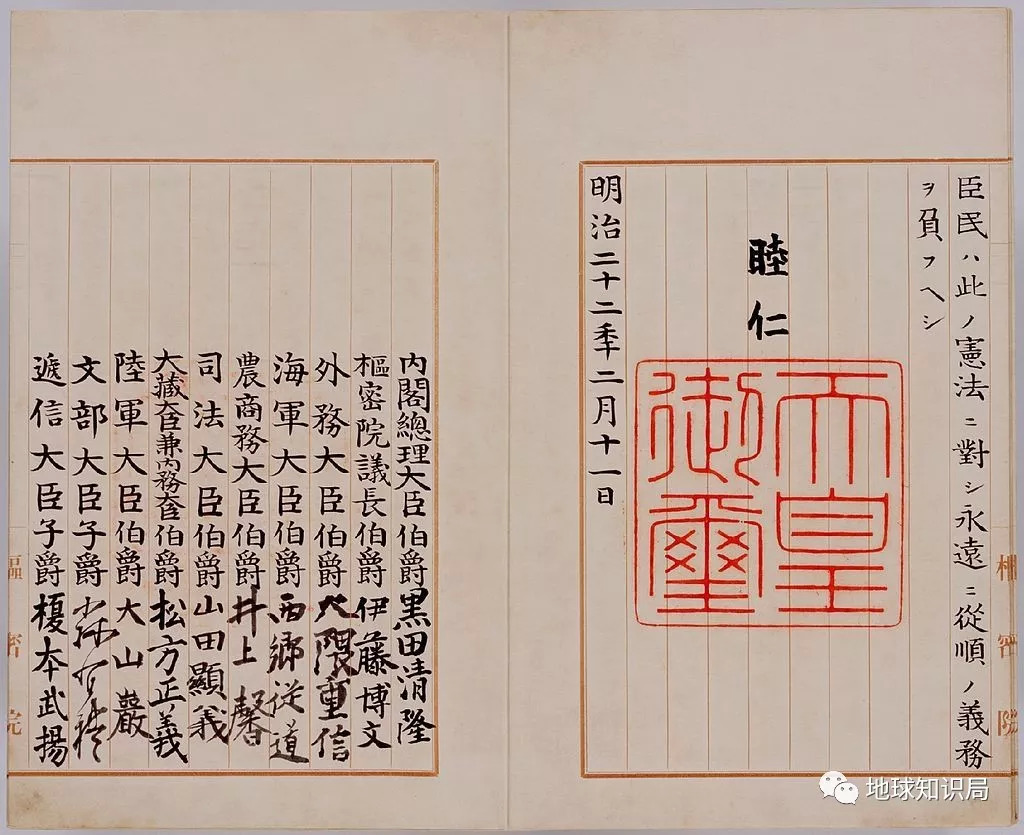 臣民ハ此ノ憲法ニ對シ永遠ニ從順ノ義務
ヲ負フヘシ
睦仁
天皇
御璽
明治二十二秊二月十一日
樞密院
內閣總理大臣伯爵黑田清隆
樞密院議長伯爵伊藤博文
外務大臣伯爵大隈重信
海軍大臣伯爵西郷從道
農商務大臣伯爵井上馨
司法大臣伯爵山田顯義
大藏大臣兼內務大臣伯爵松方正義
陸軍大臣伯爵大山巖
文部大臣子爵森有禮
遞信大臣子爵榎本武揚
樞密院
地球知识局